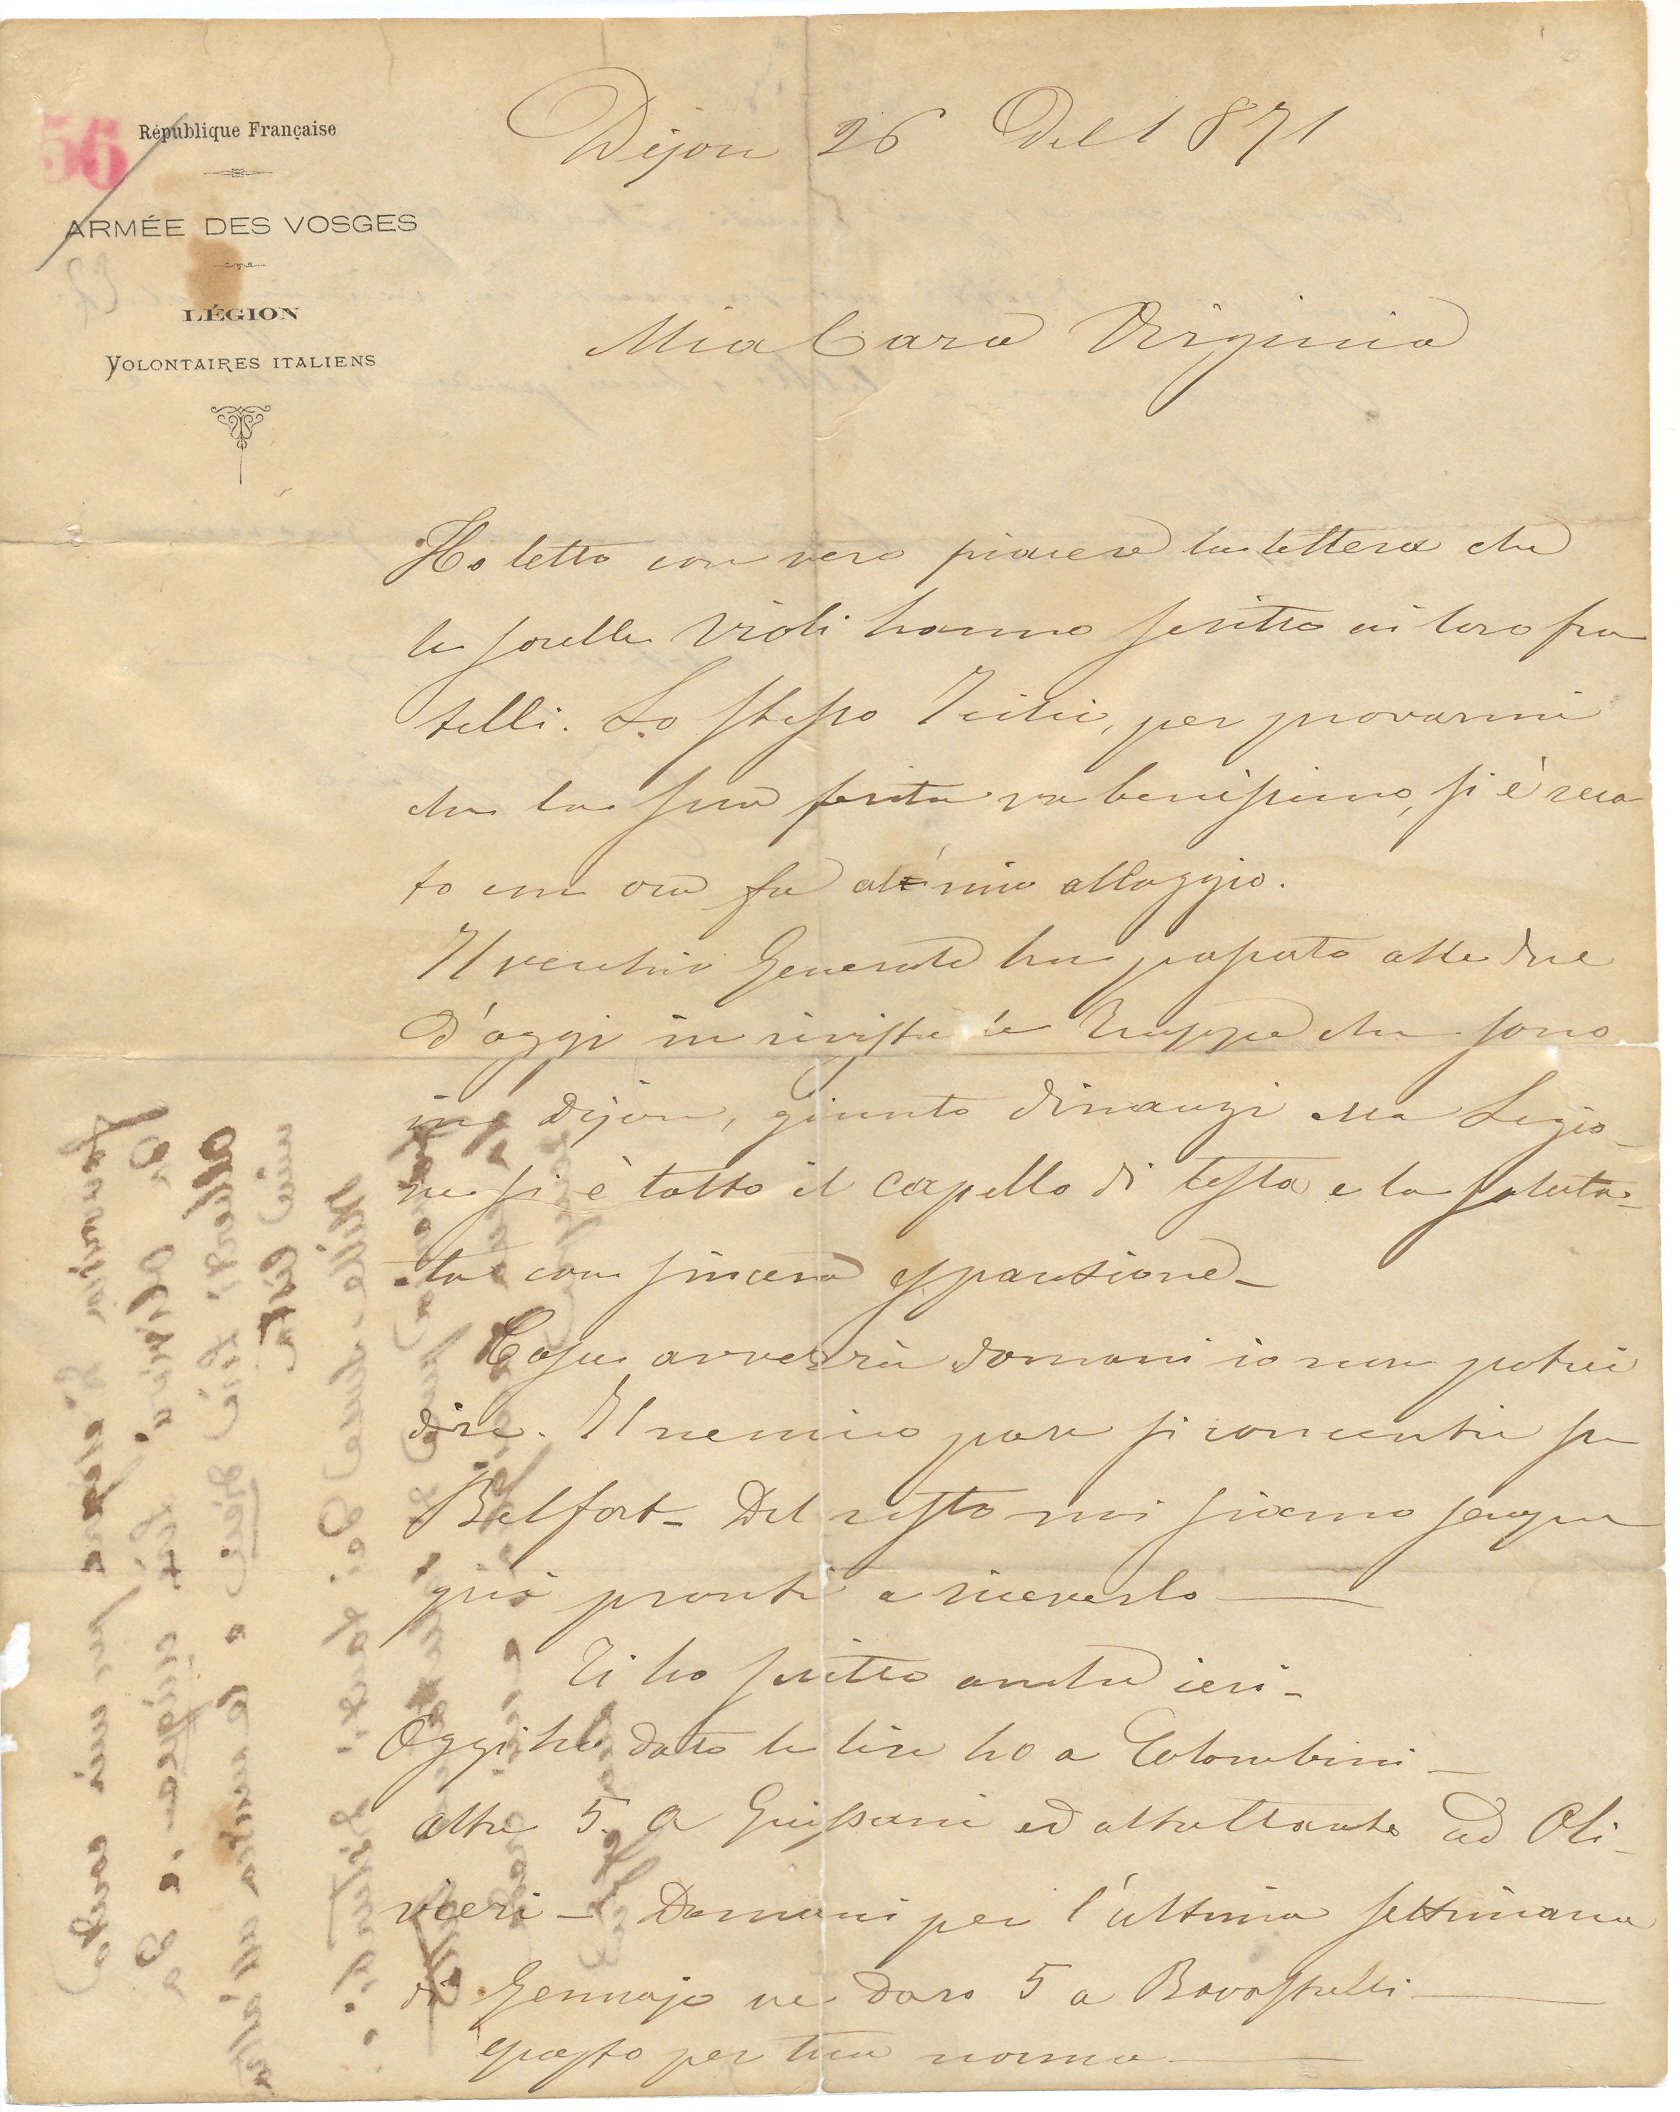 56
République Française
ARMÉE DES VOSGES
LÉGION
VOLONTAIRES ITALIENS
Dijon 26 Del 1871
Mia Cara Virginia
Ho letto con vero piacere la lettera che
le sorelle Violi hanno scritto ai loro fra
telli. Lo stesso per provarmi
che la sua ferita va benissimo, si è reca
to un ora fa al mio alloggio.
Il vecchio Generale ha passato alle due
d'oggi in rivista le truppe che sono
in Dijon, giunto dinanzi alla Legio-
ne si è tolto il capello di testa e la salutò
con sincera espansione-
Cosa avverrà domani io non potrei
dire. Il nemico pare si concentri su
Belfort- Del resto noi siamo sempre
quà pronti a riceverlo
Ti ho scritto anche ieri-
Oggi ho dato le lire a Colombini-
altre 5. a Giussani ed altrettante ad Oli-
vieri- Domani per l'ultima settimana
di Gennajo ne darò 5 a
questo per tua norma